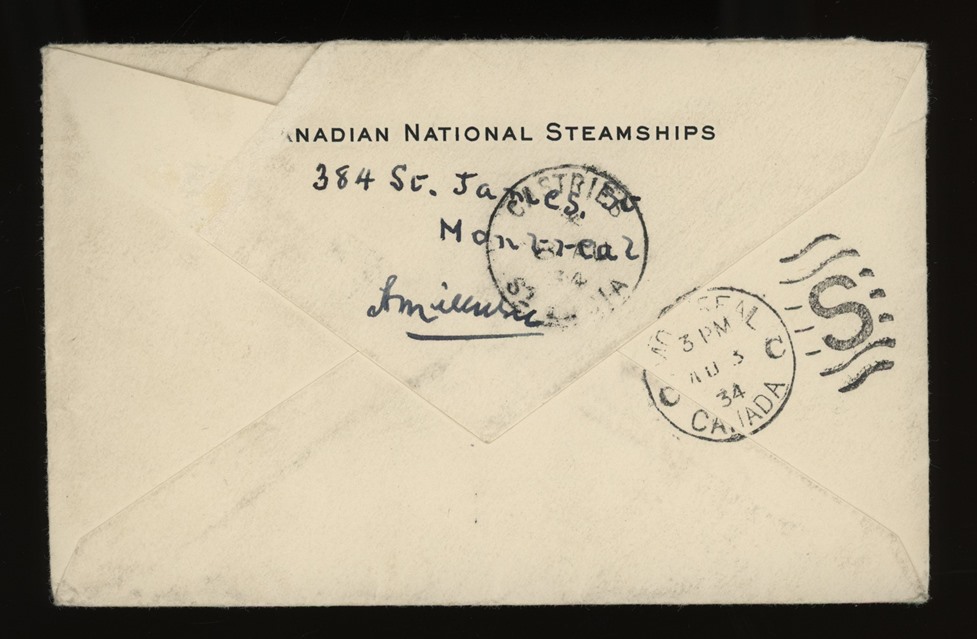 ANADIAN NATIONAL STEAMSHIPS
384 St. James. St
Montreal
CASTRIES
ST LUCIA
MONTREAL
3 PM
AU 3
34
CANADA
C C
S